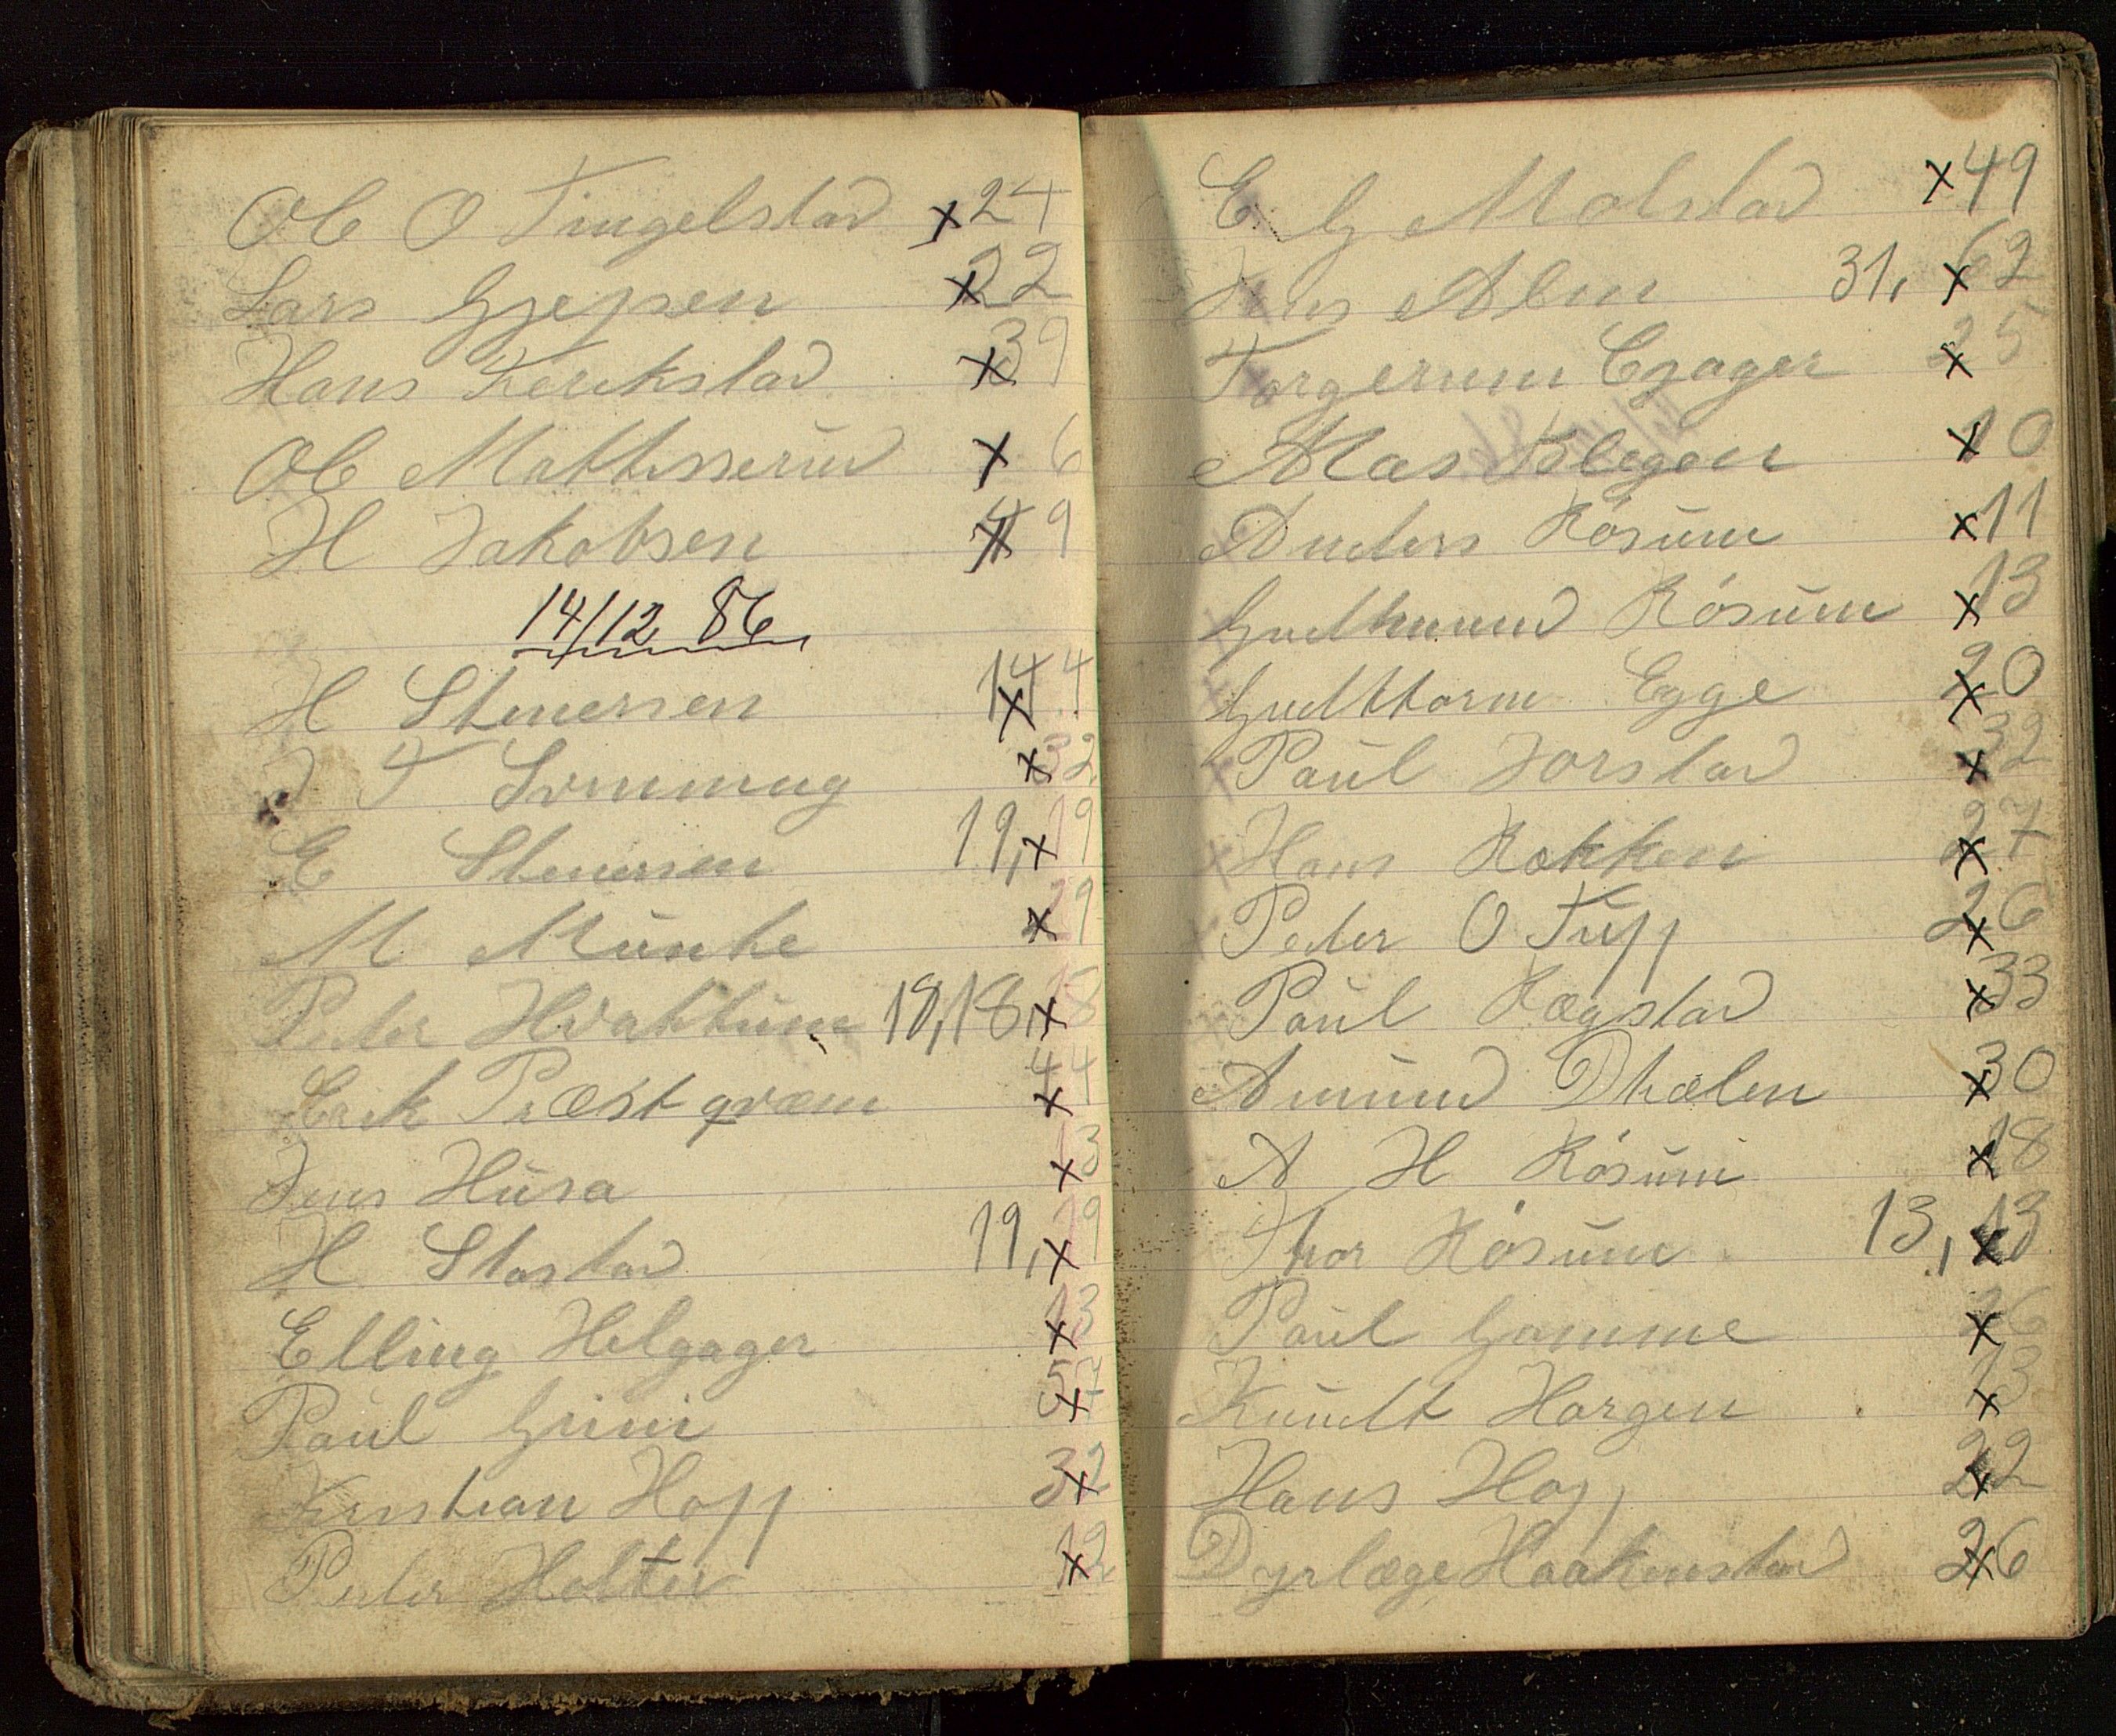 Ole O Tingelstad x 24
Lars Gjepsen x 22
Hans Kerikstad x 39
Ole Mattisserud x 6
H Jakobsen x 49
14/12 86
H Stenersen 14, x 14
J T Lommug x 32
E Stenersen 19, x 19
M Munke x 29
Peder Hvattum 18, 18, x 18
Erik Præstqværn x 44
Jens Husa x 13
H Stastad 19, x 19
Elling Helgager x 13
Paul Grini x 57
Kristian Hopp x 32
Peder Holter x 12
E G Molstad x 49
Jens Alm 31, x 62
Torgerum Egager x 25
Mas Klegen x 10
Anders Rósum x 11
Gudmund Rósum x 13
Gudttorm Egge x 20
Paul Jorstad x 32
Hans Røkken x 27
Peder O Tupp x 26
Paul Rægstad x 33
Amund Dhælen x 30
A H Rósum x 18
Thor Rósum 13, x 13
Paul Gamme x 26
Knudt Horgen x 13
Hans Hop x 22
Dyrlæge Haakenstad x 26